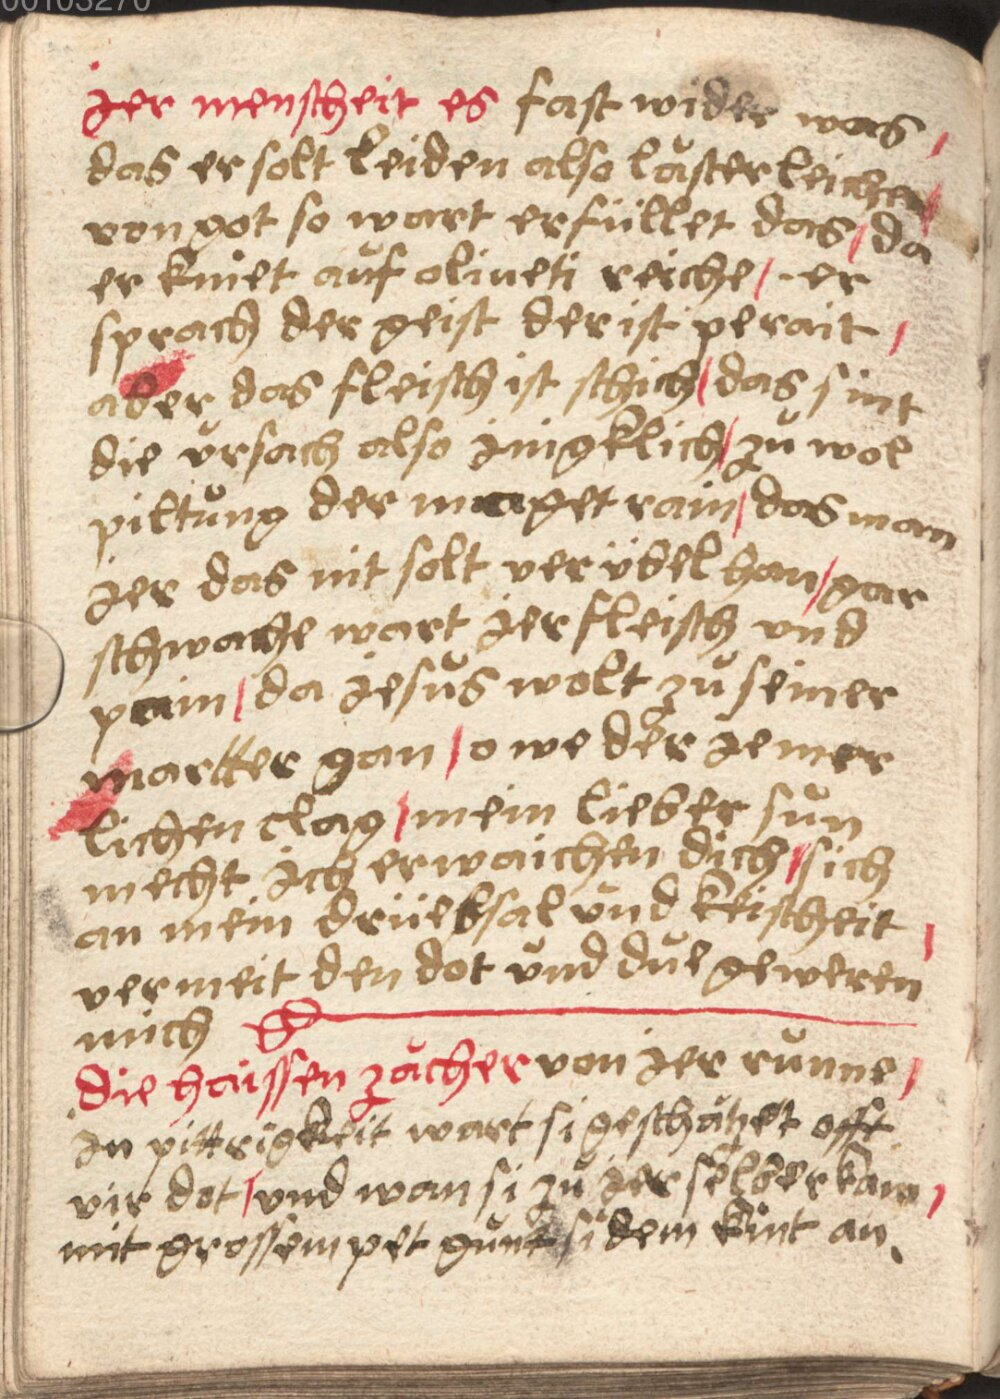 00103270
jer menscheit es fast wider was /
das er solt leiden also lästerleichen /
von got so wart erfüllet das / da
er kniet auf oliueti reiche / er
sprach der geist der ist perait /
aber das fleisch ist schich / das sint
die ursach also jnigklich / zu wol
piltung der maget rain / das man
jer das nit solt verübel han / gar
schwache wart jer fleisch vnd
pain / da jesus wolt zu seiner
martter gan / o we der jemer
lichen clag / mein lieber sun
mecht ich erwaichen dich / sich
an mein drüebsal vnd keischeit /
vermeit den dot vnd due geweren
mich
die haissen zächer von jer runne /
jn pittrigkeit wart si geschätzet offt
vir dot / vnd wan si zu jer selber kam /
mit grossem pet si dem kint an.